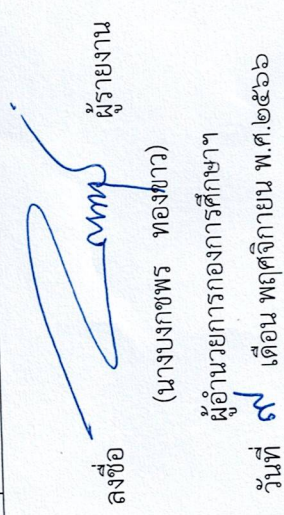 ลงชื่อ ผู้รายงาน
(นางบงกชพร ทองขาว)
ผู้อำนวยการกองการศึกษาฯ
วันที่ เดือน พฤศจิกายน พ.ศ.๒๕๖๖